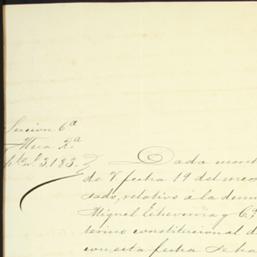 Sección 6ª
Mesa 2ª
Nº 3,183.
Dada
de V fecha 19 del mes
sado, relativo á la
Miguel Echeverría y Cª
termo constitucional d
con esta fecha